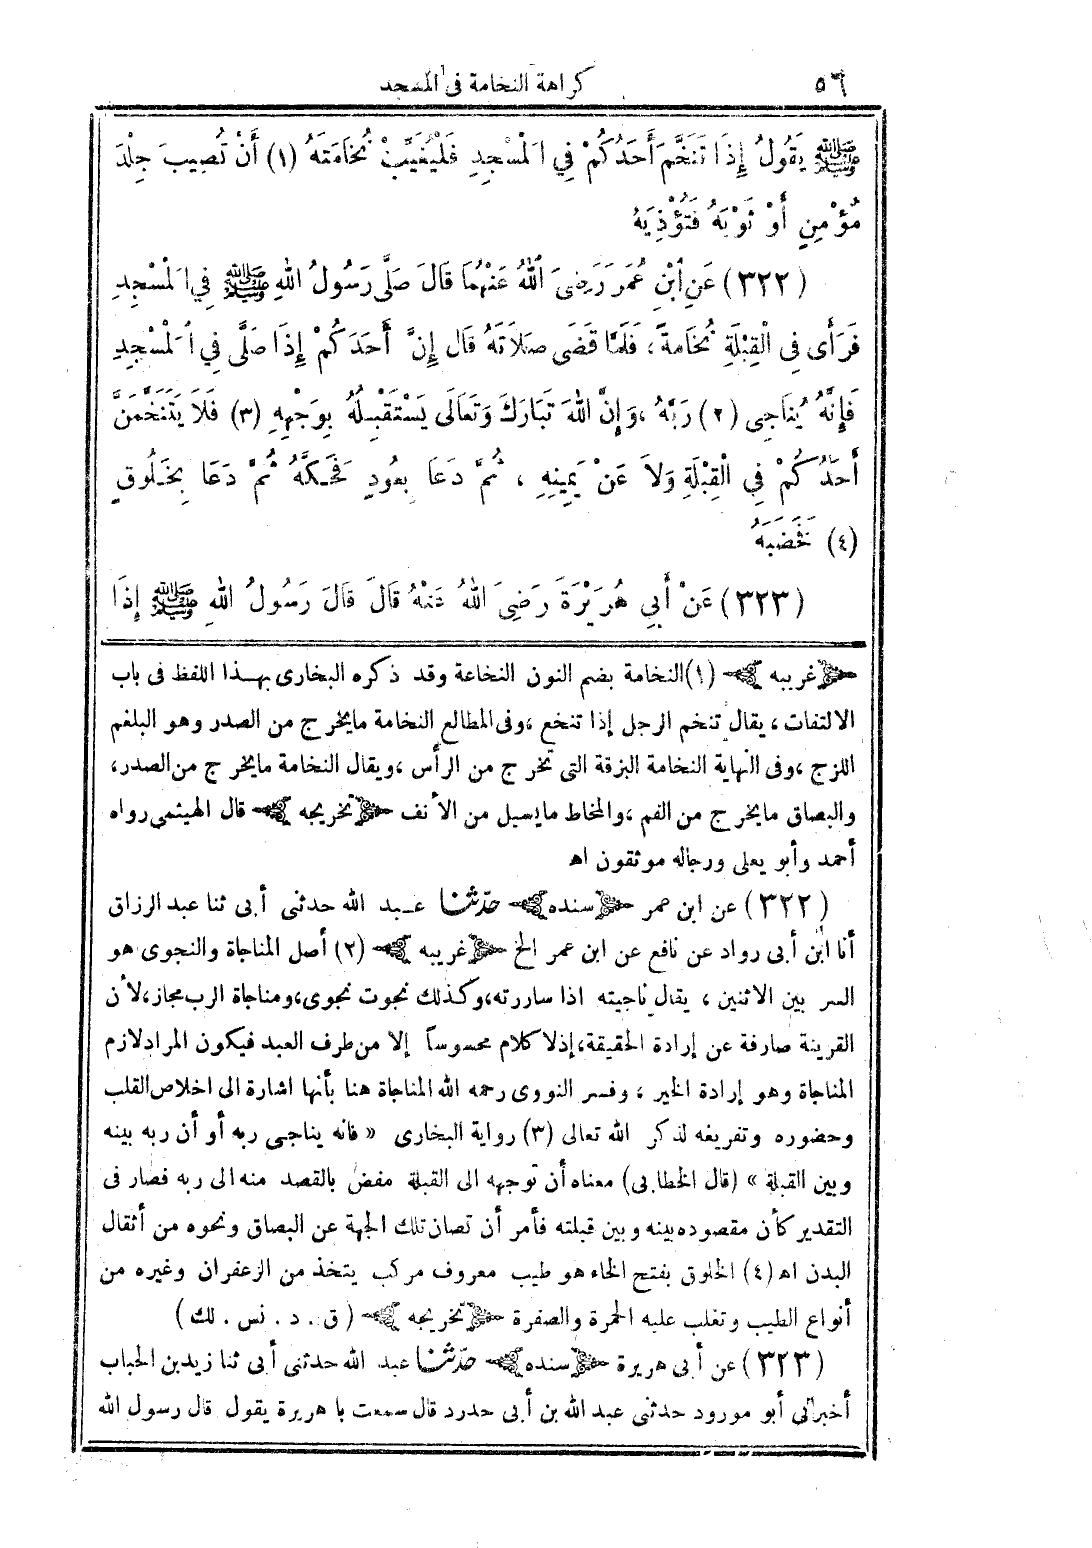 ٥٦ كراهة النخامة فى المسجد
ﷺ يَقُولُ إِذَا تَنَخَّمَ أَحَدُكُمْ فِي الْمَسْجِدِ فَلْيُغَيِّبْ نُخَامَتَهُ (١) أَنْ تُصِيبَ جِلْدَ
مُؤْمِنٍ أَوْ ثَوْبَهُ فَتُؤْذِيَهُ
(٣٢٢) عَنِ ابْنِ عُمَرَ رَضِيَ اللهُ عَنْهُمَا قَالَ صَلَّى رَسُولُ اللهِ ﷺ فِي الْمَسْجِدِ
فَرَأَى فِي الْقِبْلَةِ نُخَامَةً، فَلَمَّا قَضَى صَلَاتَهُ قَالَ إِنَّ أَحَدَكُمْ إِذَا صَلَّى فِي الْمَسْجِدِ
فَإِنَّهُ يُنَاجِى (٢) رَبَّهُ، وَإِنَّ اللهَ تَبَارَكَ وَتَعَالَى يَسْتَقْبِلُهُ بِوَجْهِهِ (٣) فَلَا يَتَنَخَّمَنَّ
أَحَدُكُمْ فِي الْقِبْلَةِ وَلَا عَنْ يَمِينِهِ ، ثُمَّ دَعَا بِعُودٍ فَحَكَّهُ ثُمَّ دَعَا بِخَلُوقٍ
(٤) فَخَضَبَهُ
(٣٢٣) عَنْ أَبِي هُرَيْرَةَ رَضِيَ اللهُ عَنْهُ قَالَ قَالَ رَسُولُ اللهِ ﷺ إِذَا
﴿غريبه﴾ (١) النخامة بضم النون النخاعة وقد ذكره البخارى بهذا اللفظ فى باب
الالتفات ، يقال تنخم الرجل إذا تنخع ،وفى المطالع النخامة مايخرج من الصدر وهو البلغم
اللزج ،وفى النهاية النخامة البزقة التى تخرج من الرأس ،ويقال النخامة مايخرج من الصدر،
والبصاق مايخرج من الفم ،والمخاط مايسيل من الأنف ﴿تخريجه﴾ قال الهيثمى رواه
أحمد وأبو يعلى ورجاله موثقون اه
(٣٢٢) عن ابن عمر ﴿سنده﴾ حدّثنا عبد الله حدثنى أبى ثنا عبد الرزاق
أنا ابن أبى رواد عن نافع عن ابن عمر الخ ﴿غريبه﴾ (٢) أصل المناجاة والنجوى هو
السر بين الاثنين ، يقال ناجيته اذا ساررته،وكذلك نجوت نجوى،ومناجاة الرب مجاز،لأن
القرينة صارفة عن إرادة الحقيقة،إذلا كلام محسوساً إلا من طرف العبد فيكون المراد لازم
المناجاة وهو إرادة الخير ، وفسر النووى رحمه الله المناجاة هنا بأنها اشارة الى اخلاص القلب
وحضوره وتفريغه لذكر الله تعالى (٣) رواية البخارى « فانه يناجى ربه أو أن ربه بينه
وبين القبلة » (قال الخطابى) معناه أن توجهه الى القبلة مفض بالقصد منه الى ربه فصار فى
التقدير كأن مقصوده بينه وبين قبلته فأمر أن تصان تلك الجهة عن البصاق ونحوه من أثقال
البدن اه (٤) الخلوق بفتح الخاء هو طيب معروف مركب يتخذ من الزعفران وغيره من
أنواع الطيب وتغلب عليه الحمرة والصفرة ﴿تخريجه﴾ (ق . د . نس . لك)
(٣٢٣) عن أبى هريرة ﴿سنده﴾ حدّثنا عبد الله حدثنى أبى ثنا زيد بن الحباب
أخبرنى أبو مورود حدثنى عبد الله بن أبى حدرد قال سمعت با هريرة يقول قال رسول الله